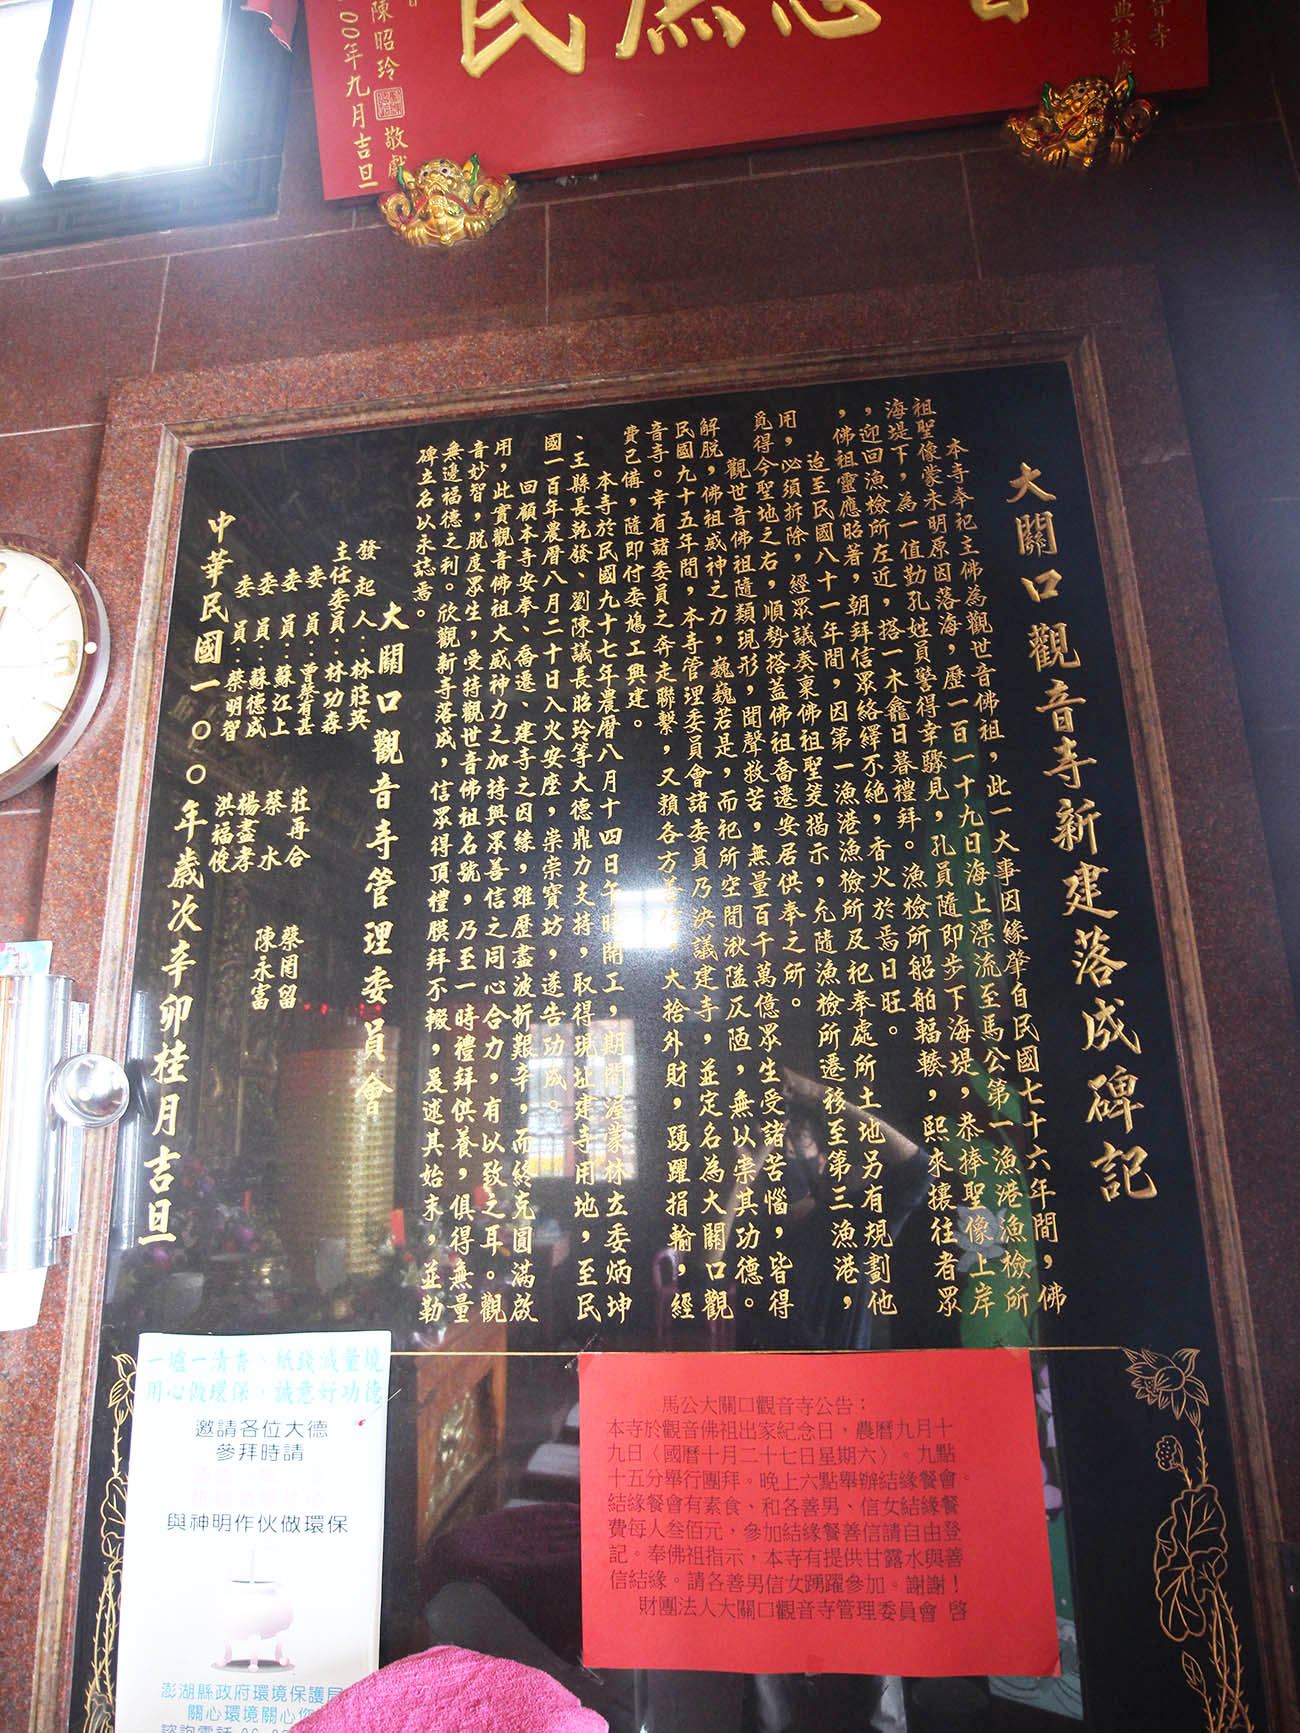 慈
民
典誌
陳昭玲 敬獻
00年九月吉旦
大關口觀音寺新建落成碑記
本寺奉祀主佛為觀世音佛祖，此一大事因緣肇自民國七十六年間，佛
祖聖像蒙未明原因落海，歷一百一十九日海上漂流至馬公第一漁港漁檢所
海堤下，為一值勤孔姓員警得幸驟見，孔員隨即步下海堤，恭捧聖像上岸
，迎回漁檢所左近，搭一木龕日暮禮拜。漁檢所船舶輻輳，熙來攘往者眾
，佛祖靈應昭著，朝拜信眾絡繹不絕，香火於焉日旺。
迨至民國八十一年間，因第一漁港漁檢所及祀奉處所土地另有規劃他
用，必須拆除，經眾議奏稟佛祖聖筊揭示，允隨漁檢所遷移至第三漁港，
覓得今聖地之右，順勢搭蓋佛祖喬遷安居供奉之所。
觀世音佛祖隨類現形，聞聲救苦，無量百千萬億眾生受諸苦惱，皆得
解脫，佛祖威神之力，巍巍若是，而祀所空間湫隘仄陋，無以崇其功德。
民國九十五年間，本寺管理委員會諸委員乃決議建寺，並定名為大關口觀
音寺。幸有諸委員之奔走聯繫，又類各方善信，大捨外財，踴躍捐輸，經
費已備，隨即付委鳩工興建。
本寺於民國九十七年農曆八月十四日午時開工，期間渥蒙林立委炳坤
、王縣長乾發、劉陳議長昭玲等大德鼎力支持，取得現址建寺用地，至民
國一百年農曆八月二十日入火安座，崇崇寶坊，遂告功成。
回顧本寺安奉、喬遷、建寺之因緣，雖歷盡波折艱辛，而終克圓滿啟
用，此實觀音佛祖大威神力之加持與眾善信之同心合力，有以致之耳。觀
音妙智，脫度眾生，受持觀世音佛祖名號，乃至一時禮拜供養，俱得無量
無邊福德之利。欣觀新寺落成，信眾得頂禮膜拜不輟，爰述其始末，並勒
碑立名以永誌焉。
大關口觀音寺管理委員會
發起人：林莊英 莊再合 蔡罔留
主任委員：林功森 蔡水 陳永富
委員：曾蔡看甚 楊盡孝
委員：蘇江上 洪福俊
委員：蘇德成
委員：蔡明智
中華民國一〇〇年歲次辛卯桂月吉旦
一爐一清香、紙錢減量燒
用心做環保、誠意好功德
邀請各位大德
參拜時請
與神明作伙做環保
澎湖縣政府環境保護局
關心環境關心您
諮詢電話
馬公大關口觀音寺公告：
本寺於觀音佛祖出家紀念日，農曆九月十
九日〈國曆十月二十七日星期六〉。九點
十五分舉行團拜。晚上六點舉辦結緣餐會。
結緣餐會有素食、和各善男、信女結緣餐
費每人叁佰元，參加結緣餐善信請自由登
記。奉佛祖指示，本寺有提供甘露水與善
信結緣。請各善男信女踴躍參加。謝謝！
財團法人大關口觀音寺管理委員會 啓